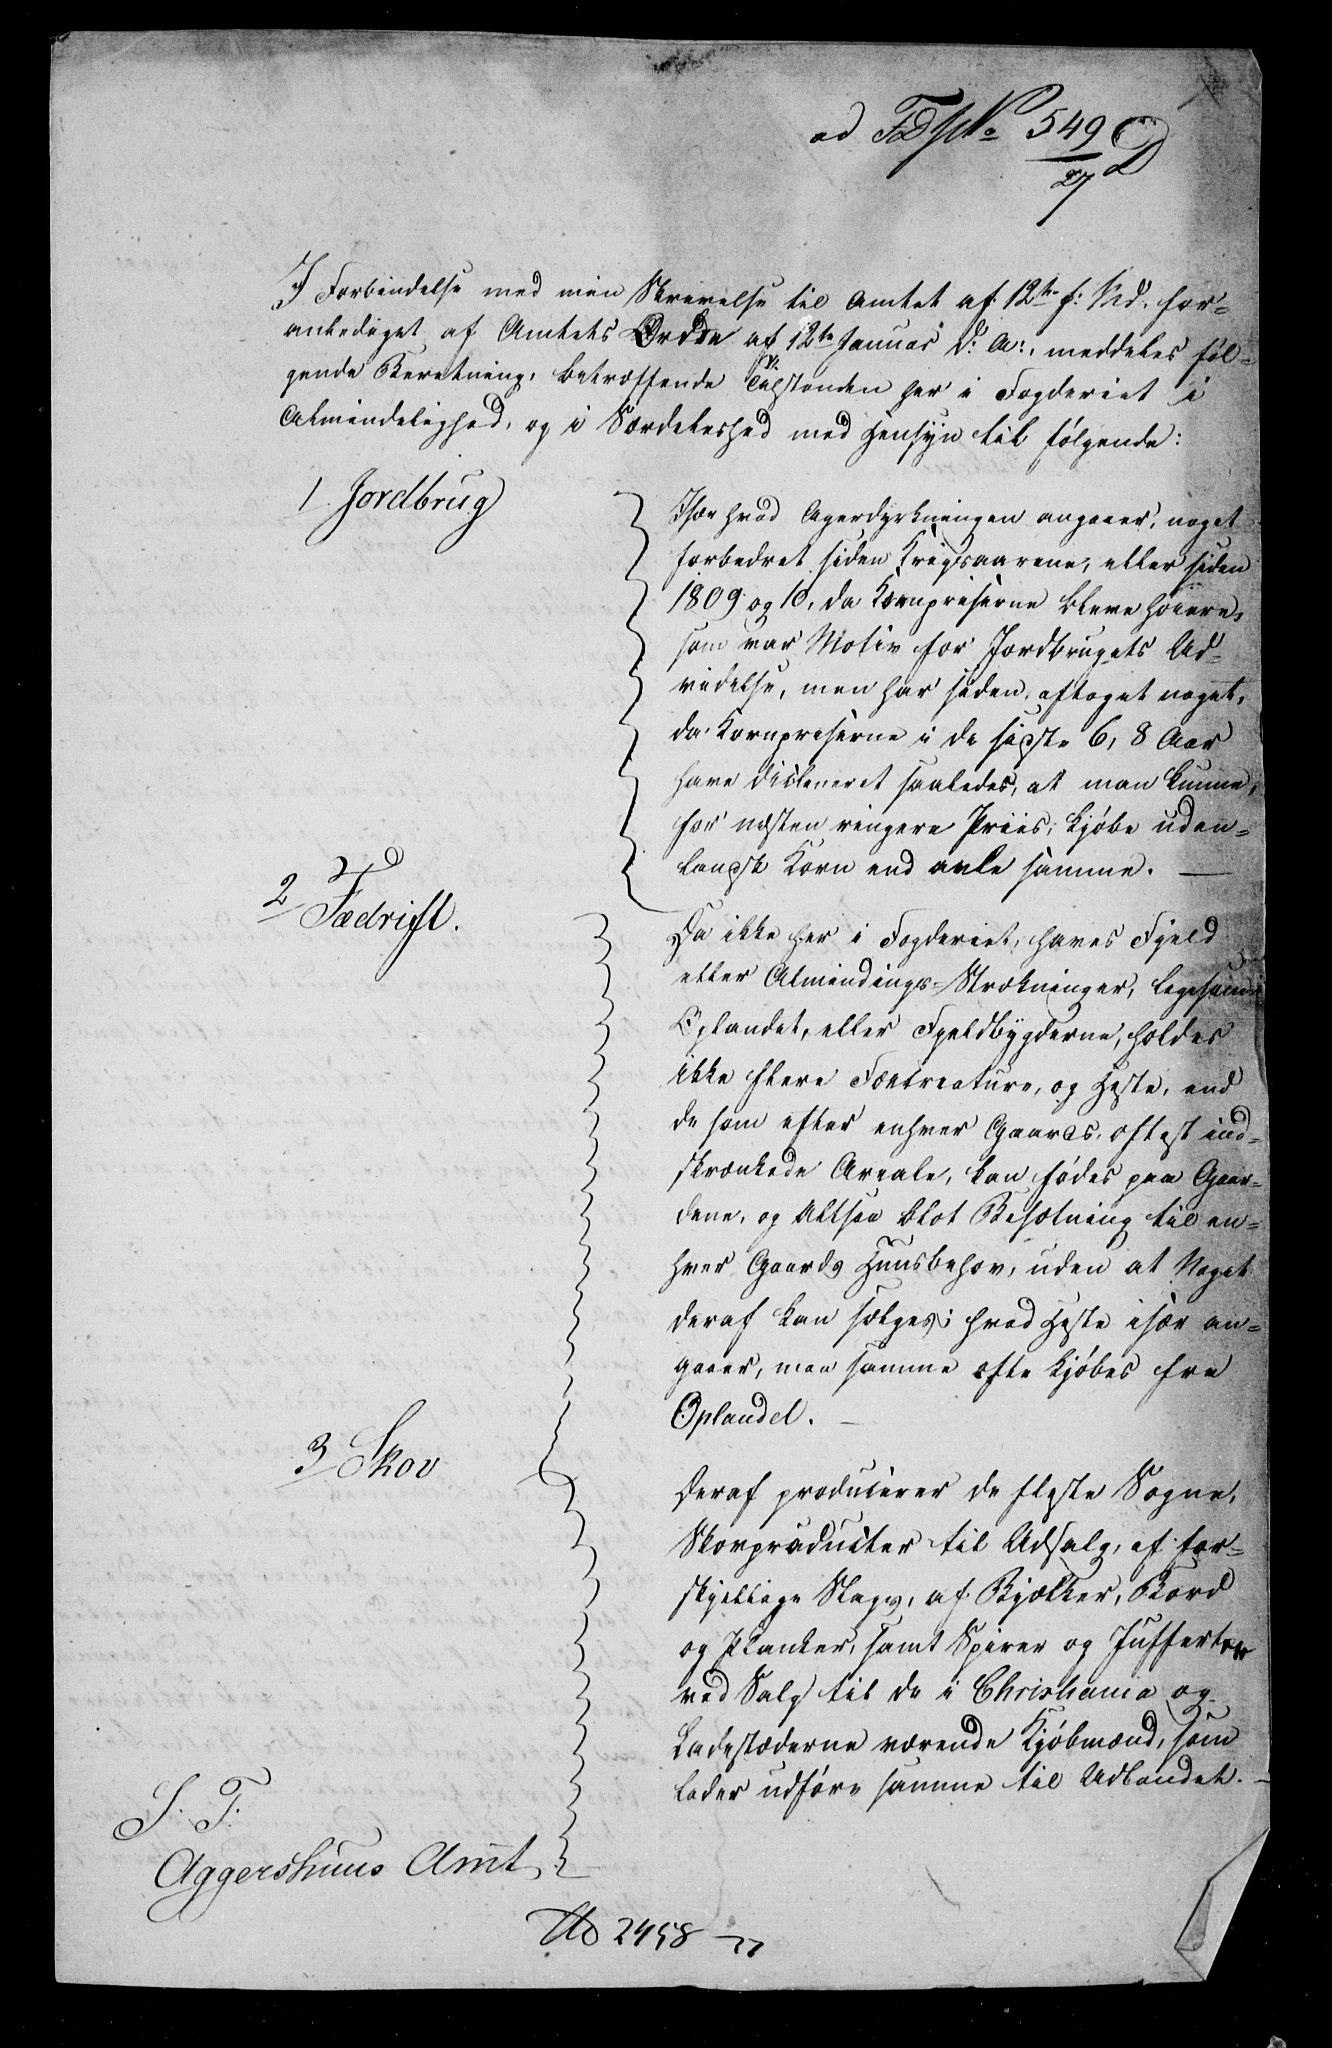 ad FDpNo 549 D
27
I Forbindelse med min Skrivelse til Amtet af 12te f: Md. for-
anlediget af Amtets Ordre af 12te Januar d: A:, meddeles føl-
gende Beretning, betræffende Tilstanden her i Fogderiet i
Almindelighed, og i Særdeleshed med Hensyn til følgende:
1 Jordbrug
Især hvad Agerdyrkningen angaaer, noget
forbedret siden Krigsaarene, eller siden
1809 og 10, da Kornpriserne bleve høiere,
som var Motiv for Jordbrugets Ud-
videlse, men har siden aftaget noget,
da Kornpriserne i de sidste 6, 8 Aar
have declineret saaledes, at man kunne,
for næsten ringere Priis, kjøbe uden-
landsk Korn end avle samme. —
2 Fædrift.
Da ikke her i Fogderiet, haves Fjeld
eller Almindings-Strækninger, ligesom
Oplandet, eller Fjeldbygderne, holdes
ikke flere Fækreature, og Heste, end
de som efter enhver Gaards, oftest ind-
skrænkede Areale, kan fødes paa Gaar-
dene, og altsaa blot Besætning til en-
hver Gaards Huusbehov, uden at Noget
deraf kan sælges; hvad Heste især an-
gaaer, maa samme ofte kjøbes fra
Oplandet. —
3 Skov
Deraf producerer de fleste Sogne,
Skovproducter til Udsalg, af for-
skjellige Slags, af Bjælker, Bord
og Planker, samt Spirer og Jufferter
ved Salg til de i Christiania og
Ladestæderne værende Kjøbmænd, som
lader udføre samme til Udlandet. —
S. T.
Aggershuus Amt
No 2458 — 27